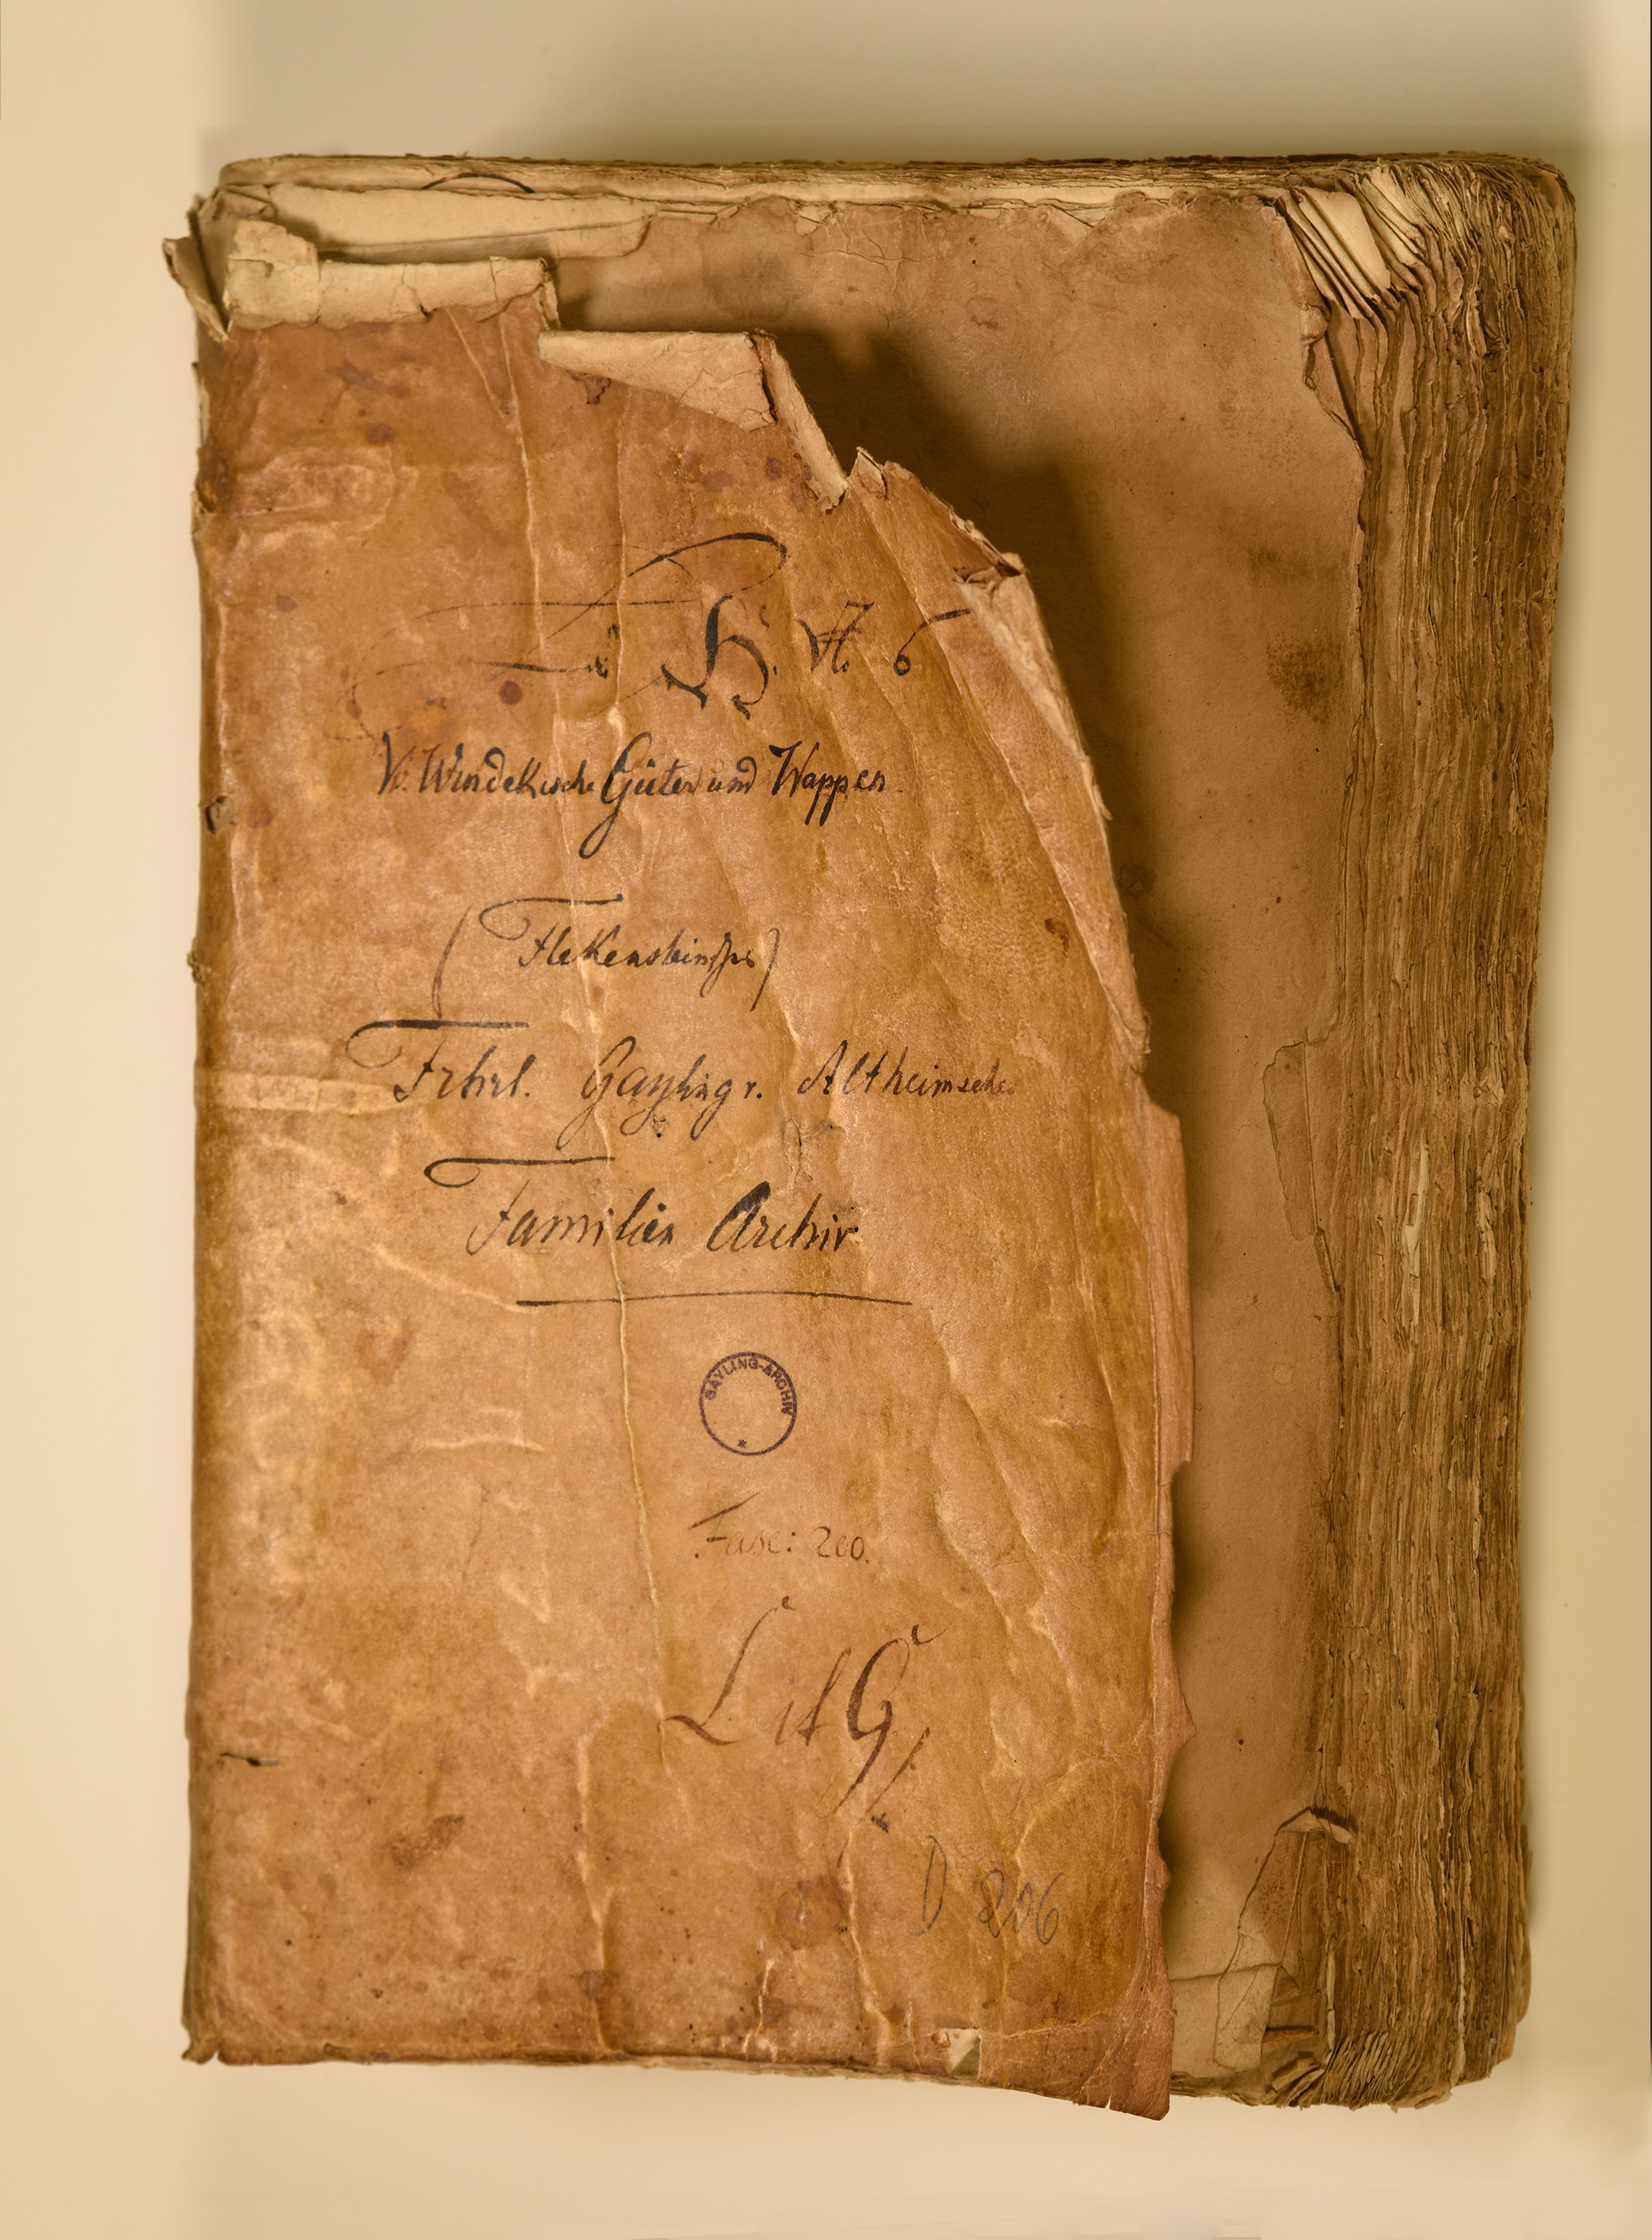 H. N. 6
V. Windekische Güter und Wappen.
(Flekensteinsche)
Frhrl. Gayling v. Altheimsche
Familien Archiv
GAYLING-ARCHIV
Fasc: 200.
Lit G
D 206